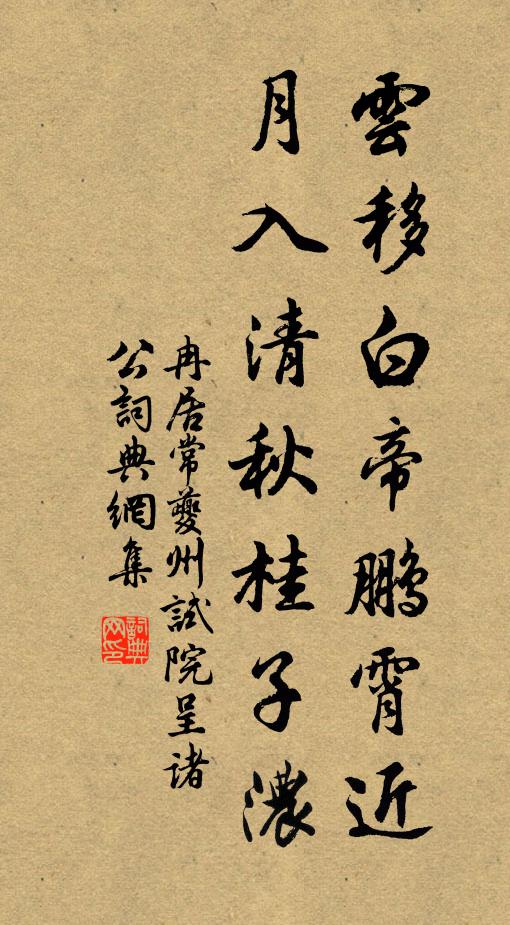 雲移白帝鵬霄近
月入清秋桂子濃
冉居常夔州試院呈諸
公詞典網集
詞典
网印